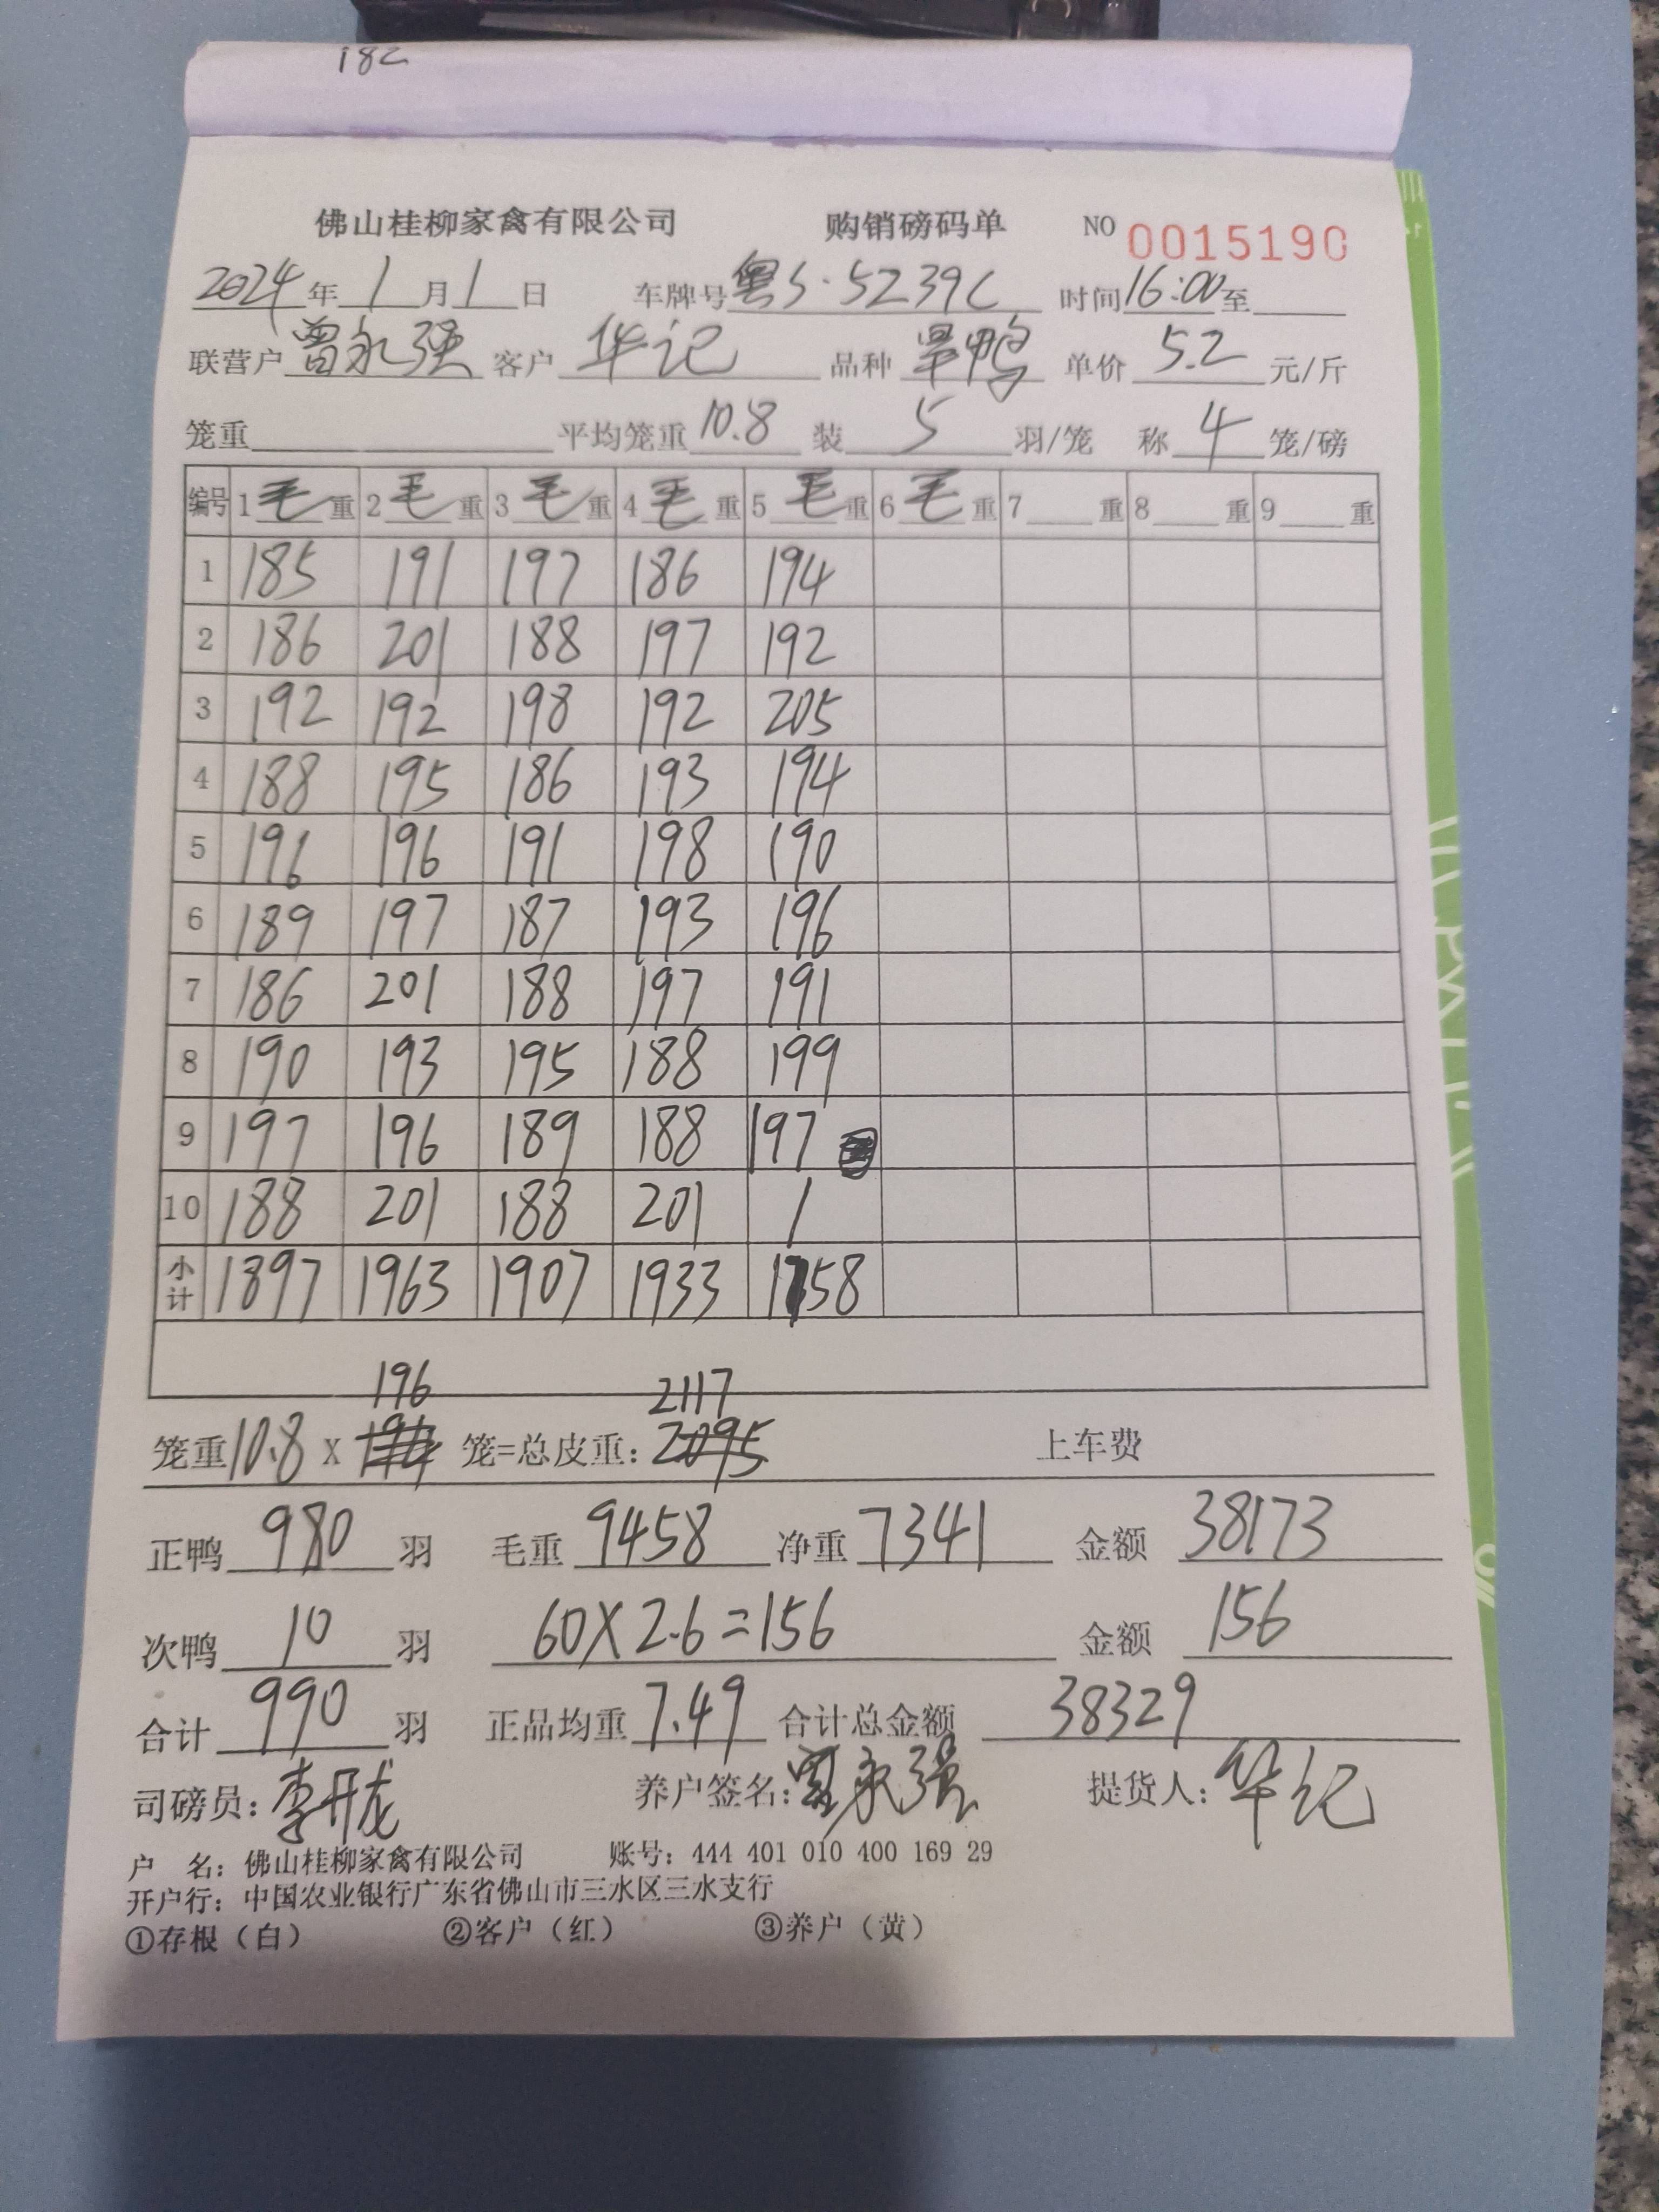 182
佛山桂柳家禽有限公司 购销磅码单 NO 0015190
2024年1月1日 车牌号粤S·5239C 时间16:00至
联营户曾永强 客户华记 品种旱鸭 单价5.2元/斤
笼重 平均笼重10.8 装5羽/笼 称4笼/磅
编号 1毛重 2毛重 3毛重 4毛重 5毛重 6毛重 7重 8重 9重
1 185 191 197 186 194
2 186 201 188 197 192
3 192 192 198 192 205
4 188 195 186 193 194
5 196 196 191 198 190
6 189 197 187 193 196
7 186 201 188 197 191
8 190 193 195 188 199
9 197 196 189 188 197
10 188 201 188 201 /
小计 1897 1963 1907 1933 1758
196 2117
笼重10.8 X 笼=总皮重: 2095 上车费
正鸭980羽 毛重9458 净重7341 金额38173
次鸭10羽 60X2.6=156 金额156
合计990羽 正品均重7.49 合计总金额38329
司磅员: 养户签名:曾永强 提货人:华记
户 名: 佛山桂柳家禽有限公司 账号: 444 401 010 400 169 29
开户行: 中国农业银行广东省佛山市三水区三水支行
①存根(白) ②客户(红) ③养户(黄)